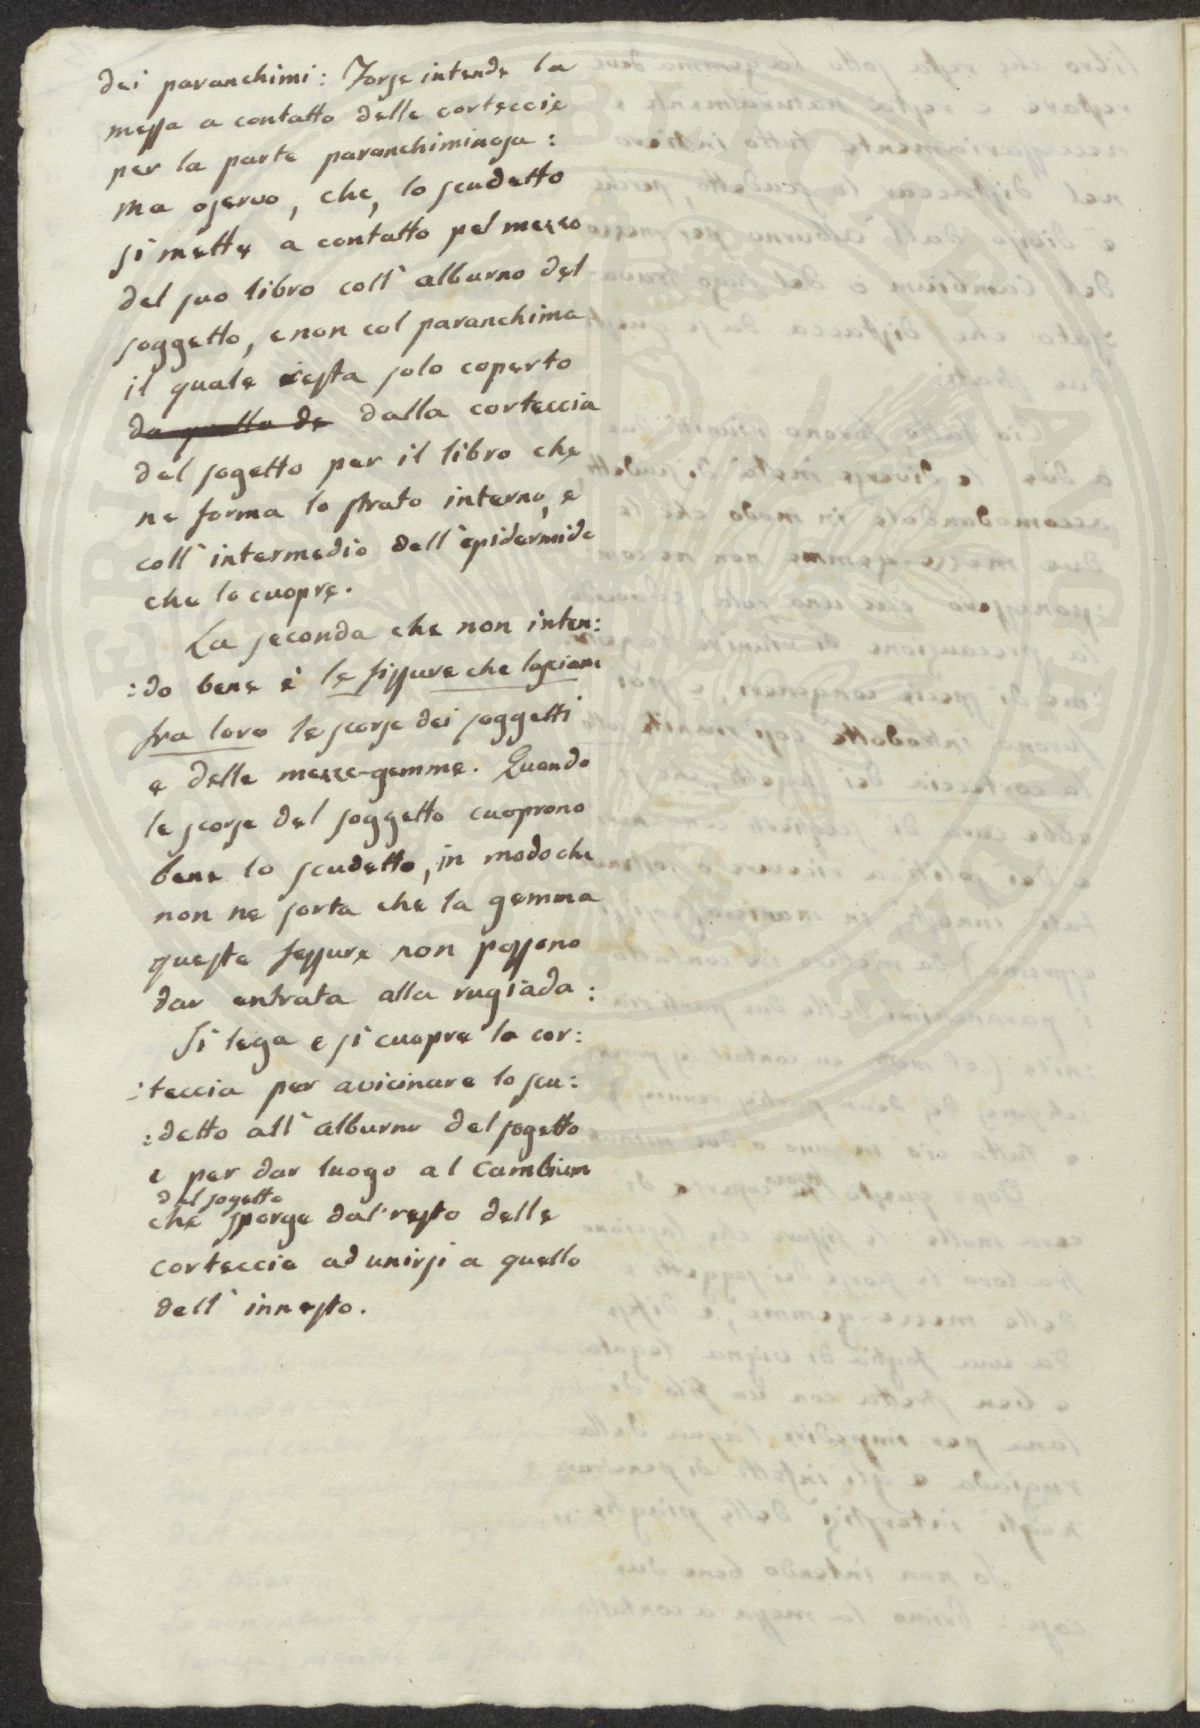 dei paranchimi: Forse intende la
messa a contatto delle corteccie
per la parte paranchiminosa:
Ma oservo, che, lo scudetto
si mette a contatto pel mezzo
del suo libro coll' alburno del
soggetto, e non col paranchima
il quale resta solo coperto
da quella de dalla corteccia
del sogetto per il libro che
ne forma lo strato interno, e
coll' intermedio dell' epidermide
che lo cuopre.
La seconda che non inten:
:do bene è le fissure che lasciano
fra loro le scorse dei soggetti
e delle mezze-gemme. Quando
le scorse del soggetto cuoprono
bene lo scudetto, in modo che
non ne sorta che la gemma
queste fessure non possono
dar entrata alla rugiada:
Si lega e si cuopre la cor:
:teccia per avicinare lo scu:
:detto all' alburno del sogetto
e per dar luogo al Cambium
del sogetto
che sporge dal resto delle
corteccie ad unirsi a quello
dell' innesto.